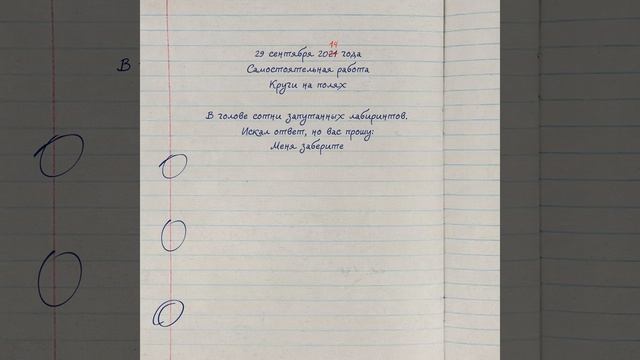 14
29 сентября 2021 года
Самостоятельная работа
Круги на полях
В голове сотни запутанных лабиринтов.
Искал ответ, но вас прошу:
Меня заберите
В